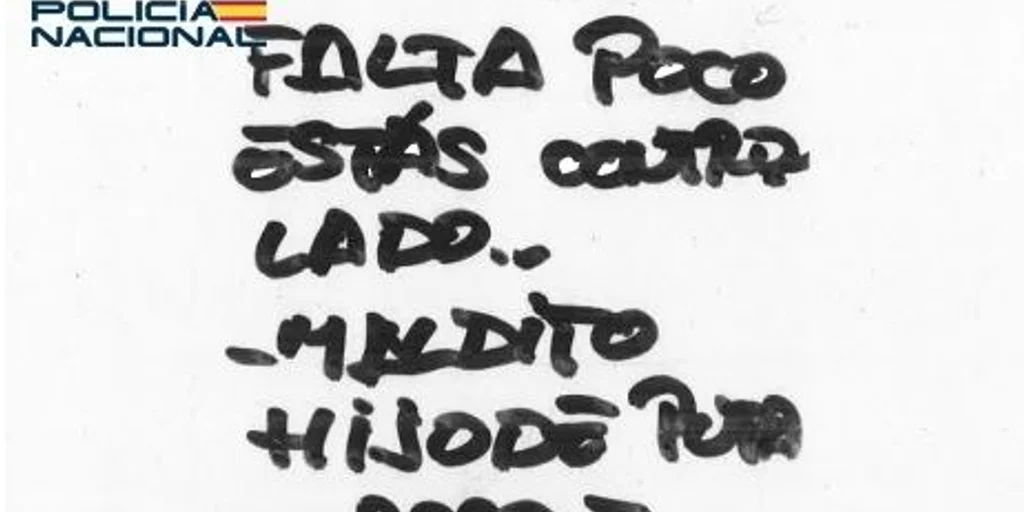 POLICIA
NACIONAL
FALTA POCO
ESTÁS CONTRO
LADO...
-MALDITO
HIJO DE PUTA